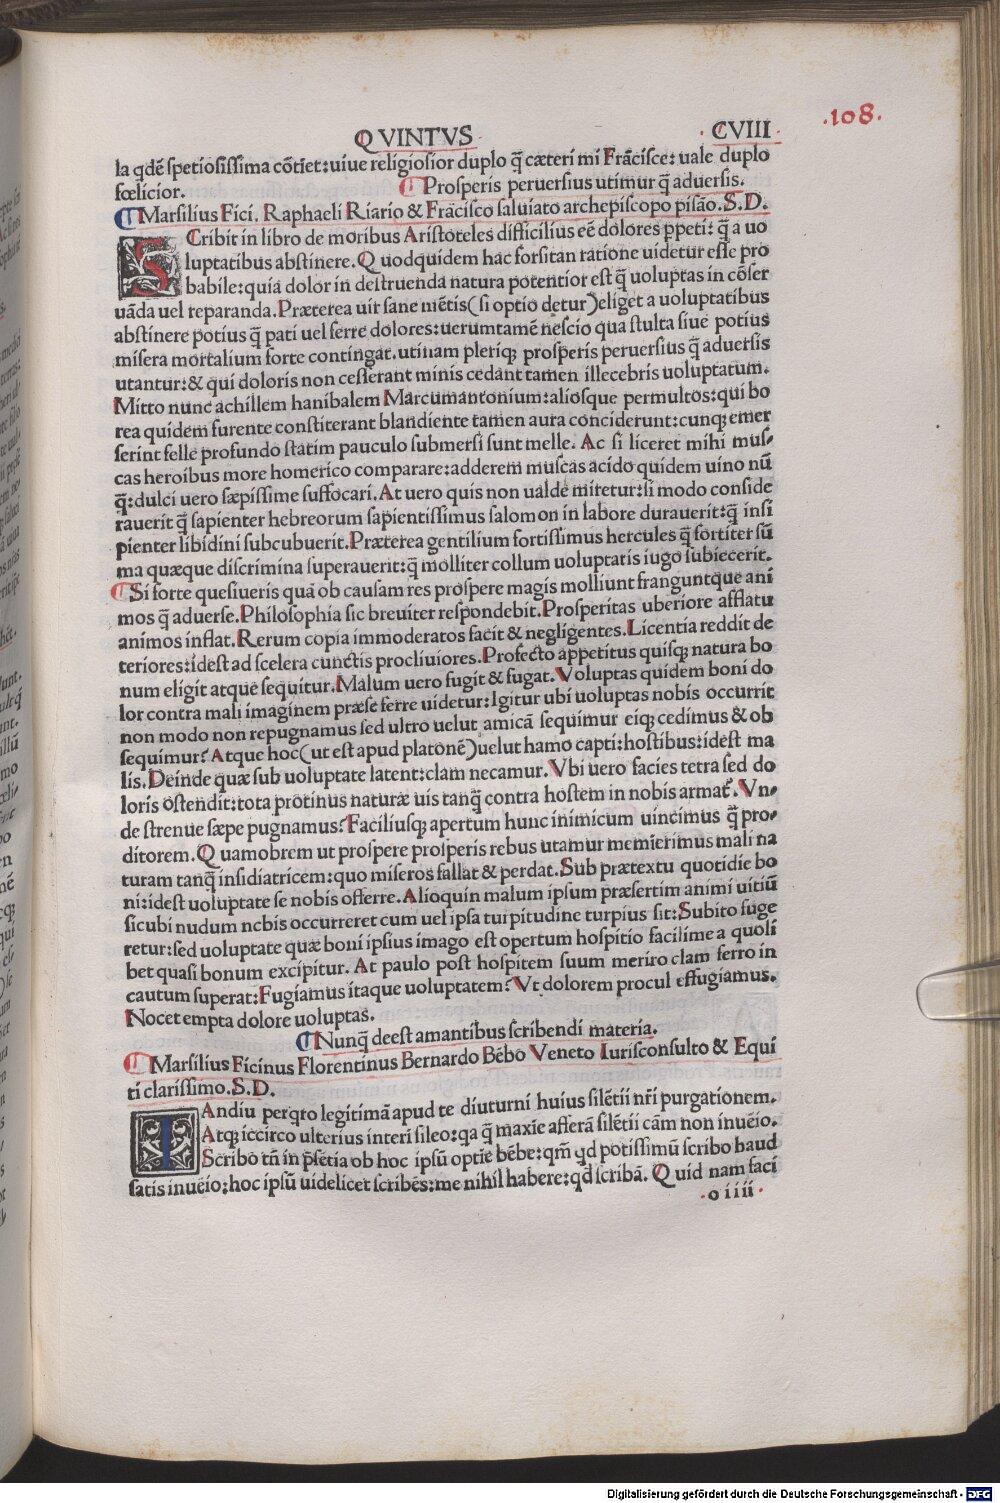 ·108·
QVINTVS · CVIII ·
la qdē spetiosissima cōtiet:uiue religiosior duplo q̄ cæteri mi Frācisce: uale duplo
fœlicior.
Prosperis peruersius utimur q̄ aduersis.
Marsilius Fici. Raphaeli Riario & Frācisco saluiato archepiscopo pisāo.S.D.
SCribit in libro de moribus Aristoteles difficilius eē dolores ppeti: q̄ a uo
luptatibus abstinere.Quodquidem hac forsitan ratione uidetur esse pro
babile:quia dolor in destruenda natura potentior est q̄ uoluptas in cōser
uāda uel reparanda.Præterea uir sane mētis(si optio detur)eliget a uoluptatibus
abstinere potius q̄ pati uel ferre dolores:uerumtamē nescio qua stulta siue potius
misera mortalium sorte contingat.utinam pleriq; prosperis peruersius q̄ aduersis
utantur:& qui doloris non cesserant minis cedant tamen illecebris uoluptatum.
Mitto nunc achillem hanibalem Marcumantonium:aliosque permultos:qui bo
rea quidem furente constiterant blandiente tamen aura conciderunt:cunq; emer
serint felle profundo statim pauculo submersi sunt melle. Ac si liceret mihi mus-
cas heroibus more homerico comparare:adderem muscas acido quidem uino nū
q̄:dulci uero sæpissime suffocari.At uero quis non ualde miretur:si modo conside
rauerit q̄ sapienter hebreorum sapientissimus salomon in labore durauerit:q̄ insi
pienter libidini subcubuerit.Præterea gentilium fortissimus hercules q̄ fortiter sū
ma quæque discrimina superauerit:q̄ molliter collum uoluptatis iugo subiecerit.
Si forte quesiueris quā ob causam res prospere magis molliunt franguntque ani
mos q̄ aduerse.Philosophia sic breuiter respondebit.Prosperitas uberiore afflatu
animos inflat.Rerum copia immoderatos facit & negligentes.Licentia reddit de
teriores:idest ad scelera cunctis procliuiores.Profecto appetitus quisq; natura bo
num eligit atque sequitur.Malum uero fugit & fugat.Voluptas quidem boni do
lor contra mali imaginem præse ferre uidetur:Igitur ubi uoluptas nobis occurrit
non modo non repugnamus sed ultro uelut amicā sequimur eiq; cedimus & ob
sequimur? Atque hoc(ut est apud platonē)uelut hamo capti:hostibus:idest ma
lis.Deinde quæ sub uoluptate latent:clam necamur.Vbi uero facies tetra sed do
loris ostendit:tota protinus naturæ uis tanq̄ contra hostem in nobis armat̄.Vn-
de strenue sæpe pugnamus?Faciliusq; apertum hunc inimicum uincimus q̄ pro-
ditorem.Quamobrem ut prospere prosperis rebus utamur meminerimus mali na
turam tanq̄ insidiatricem:quo miseros fallat & perdat.Sub prætextu quotidie bo
ni:idest uoluptate se nobis offerre.Alioquin malum ipsum præsertim animi uitiū
sicubi nudum nobis occurreret cum uel ipsa turpitudine turpius sit:Subito fuge
retur:sed uoluptate quæ boni ipsius imago est opertum hospitio facilime a quoli
bet quasi bonum excipitur. At paulo post hospitem suum meriro clam ferro in
cautum superat:Fugiamus itaque uoluptatem?Vt dolorem procul effugiamus.
Nocet empta dolore uoluptas.
Nunq̄ deest amantibus scribendi materia.
Marsilius Ficinus Florentinus Bernardo Bēbo Veneto Iurisconsulto & Equi
ti clarissimo.S.D.
IAndiu perqro legitimā apud te diuturni huius silētii nr̄i purgationem.
Atq; iccirco ulterius interi sileo:qa q̄ maxīe afferā silētii cām non inuēio.
Scribo tn̄ in pr̄setia ob hoc ipsū optīe bēbe:qm̄ qd potissimū scribo haud
satis inuēio:hoc ipsū uidelicet scribēs:me nihil habere:qd scribā. Quid nam faci
· o iiii ·
Digitalisierung gefördert durch die Deutsche Forschungsgemeinschaft - DFG